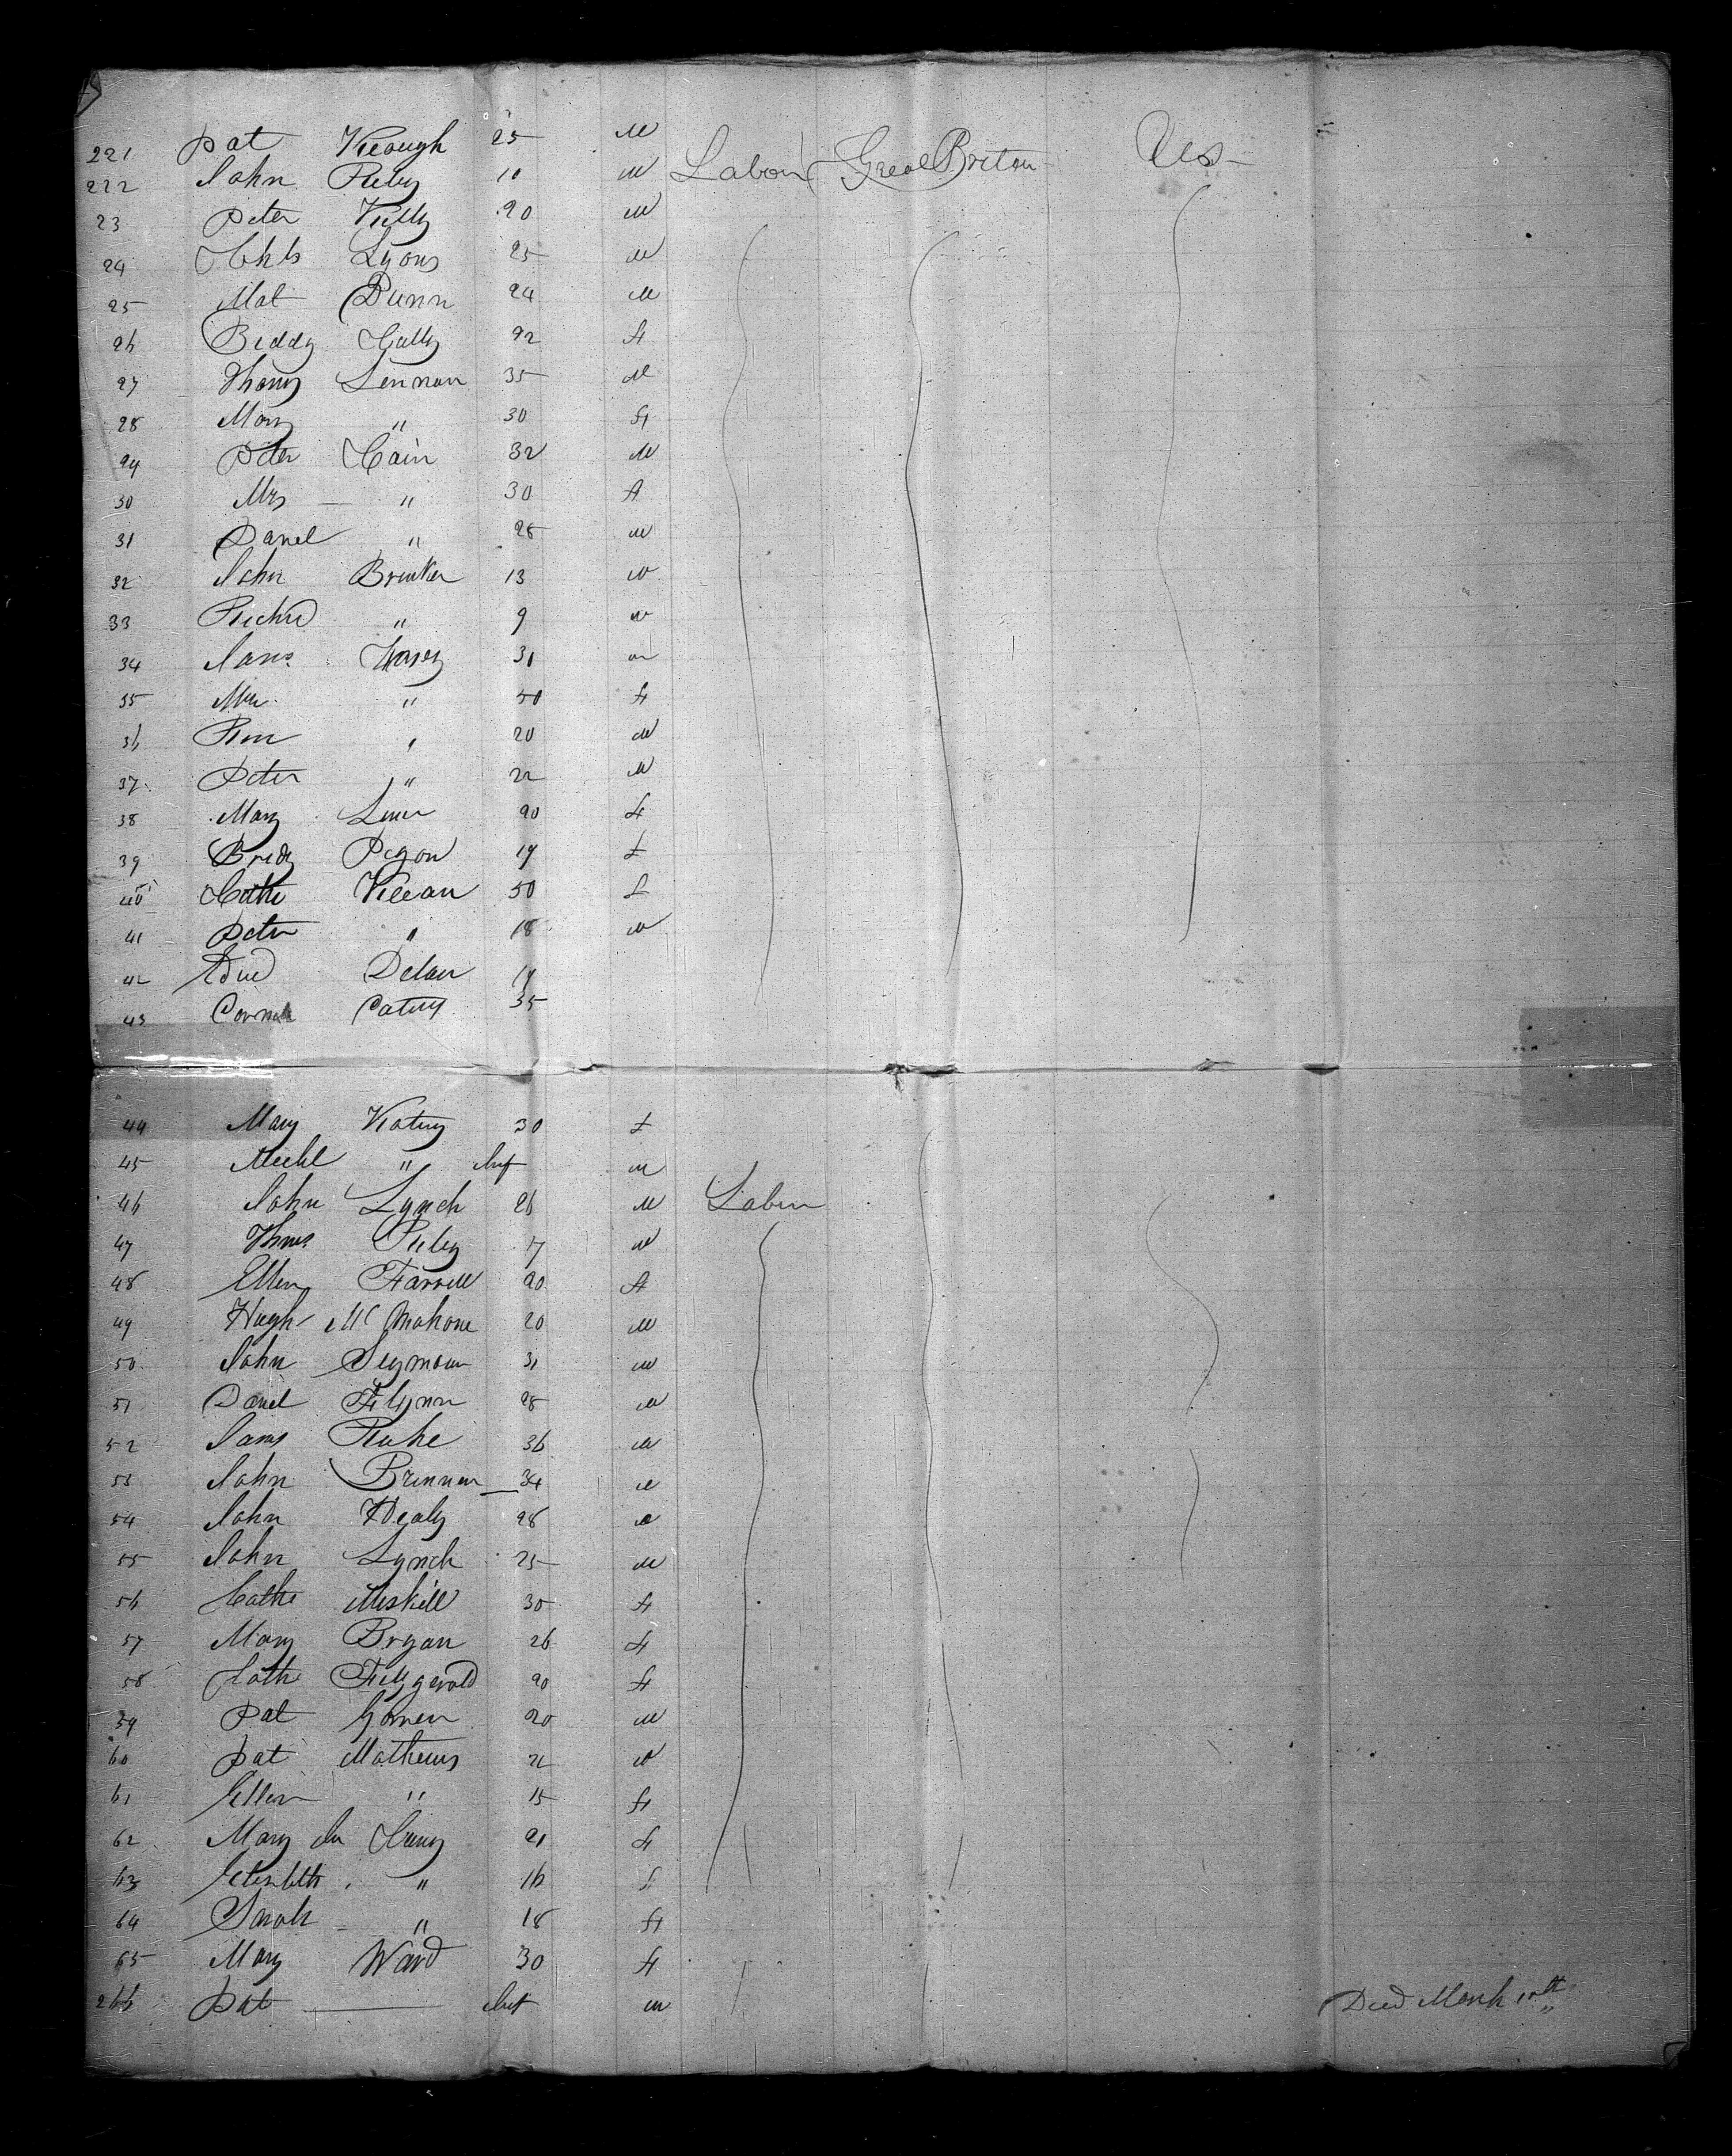 221 Pat Keough 25 M
222 John Reley 10 M Labour Great Briton Ues
23 Peter Kelly 20 M
24 Chls Lyons 25 M
25 Mat Dunn 24 M
26 Biddy Cally 22 F
27 Thoms Lennon 35 M
28 Mary " 30 F
29 Peter Cain 32 M
30 Mrs — " 30 F
31 Danel " 28 M
32 John Brinker 13 M
33 Richd " 9 M
34 Jams 31 M
35 Mrs " 50 F
36 " 20 M
37 Peter " 22 M
38 Mary 20 F
39 Bridy Pegon 19 F
40 Cathe Keean 50 F
41 Peter " 18 M
42 Edwd Delan 19
43 35
44 Mary Katiey 30 F
45 Michl " Inf M
46 John Lynch 26 M Labur
47 Thms Reley 17 M
48 Ellen Farrell 20 F
49 Hugh Mc Mahone 20 M
50 John Seymour 31 M
51 Danel Flynn 28 M
52 Jams 36 M
53 John Brennen 34 M
54 John Healy 28 M
55 John Lynch 25 M
56 Cathe Meskill 30 F
57 Mary Bryan 26 F
58 Cathe Fitzgerald 20 F
59 Pat 20 M
60 Pat Mathews 22 M
61 Ellen " 15 F
62 Mary 21 F
63 " 16 F
64 Sarah — " 18 F
65 Mary Ward 30 F
266 Pat — Inf M Died March 10th